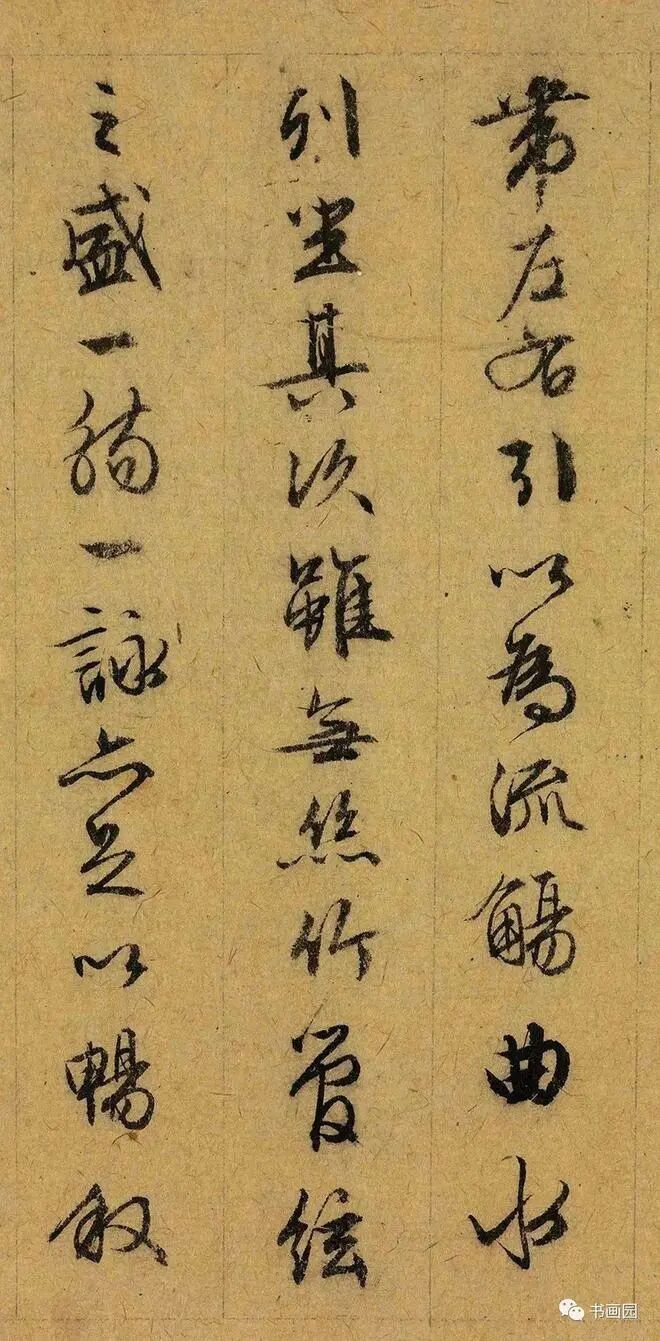 帶左右引以為流觴曲水
列坐其次雖無絲竹管絃
之盛一觴一詠亦足以暢叙
书画园